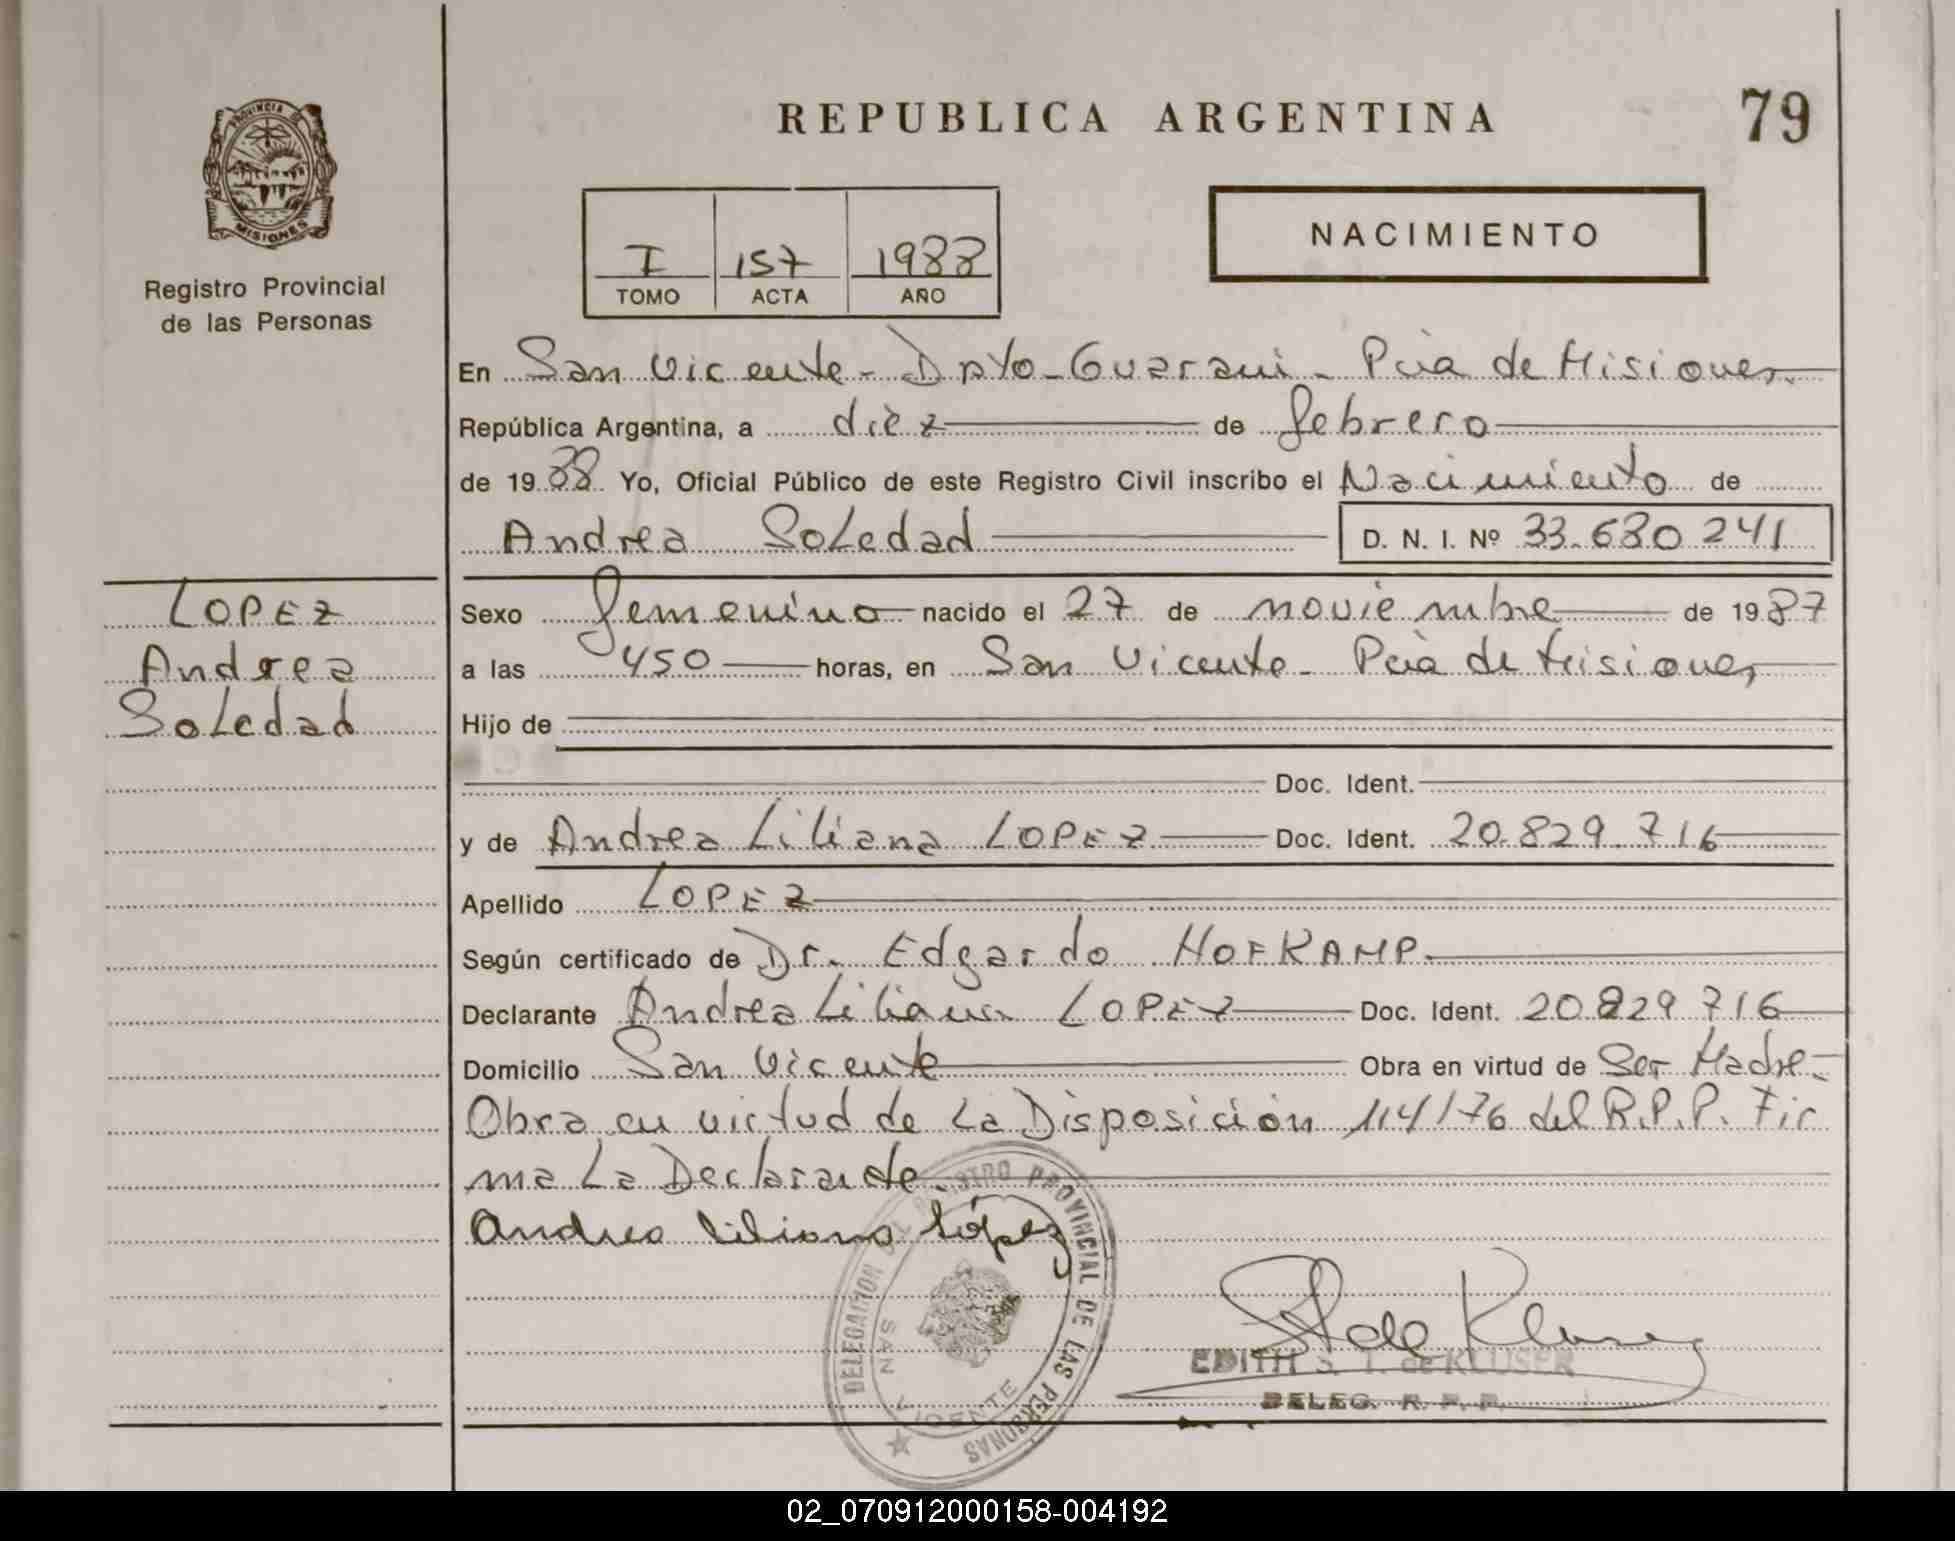 REPUBLICA ARGENTINA
79
PROVINCIA DE
MISIONES
Registro Provincial
de las Personas
I 157 1988
TOMO ACTA AÑO
NACIMIENTO
En San Vicente - Dpto - Guarani - Pcia de Misiones.
República Argentina, a diez de febrero
de 19 88 Yo, Oficial Público de este Registro Civil inscribo el Nacimiento de
Andrea Soledad D. N. I. Nº 33.680 241
LOPEZ
Andrea
Soledad
Sexo femenino nacido el 27 de noviembre de 19 87
a las 450 horas, en San Vicente - Pcia de Misiones
Hijo de
Doc. Ident.
y de Andrea Liliana LOPEZ Doc. Ident. 20.829.716
Apellido LOPEZ
Según certificado de Dr. Edgardo HOFKAMP.
Declarante Andrea Liliana LOPEZ Doc. Ident. 20 829 716
Domicilio San Vicente Obra en virtud de Ser Madre.
Obra en virtud de La Disposición 114/76 del R.P.P. Fir
ma La Declarante.
Andrea Liliana López
DELEGACION DEL REGISTRO PROVINCIAL DE LAS PERSONAS
SAN VICENTE
de Kluser
EDITH de KLUSER
DELEG. R. P. P.
02_070912000158-004192